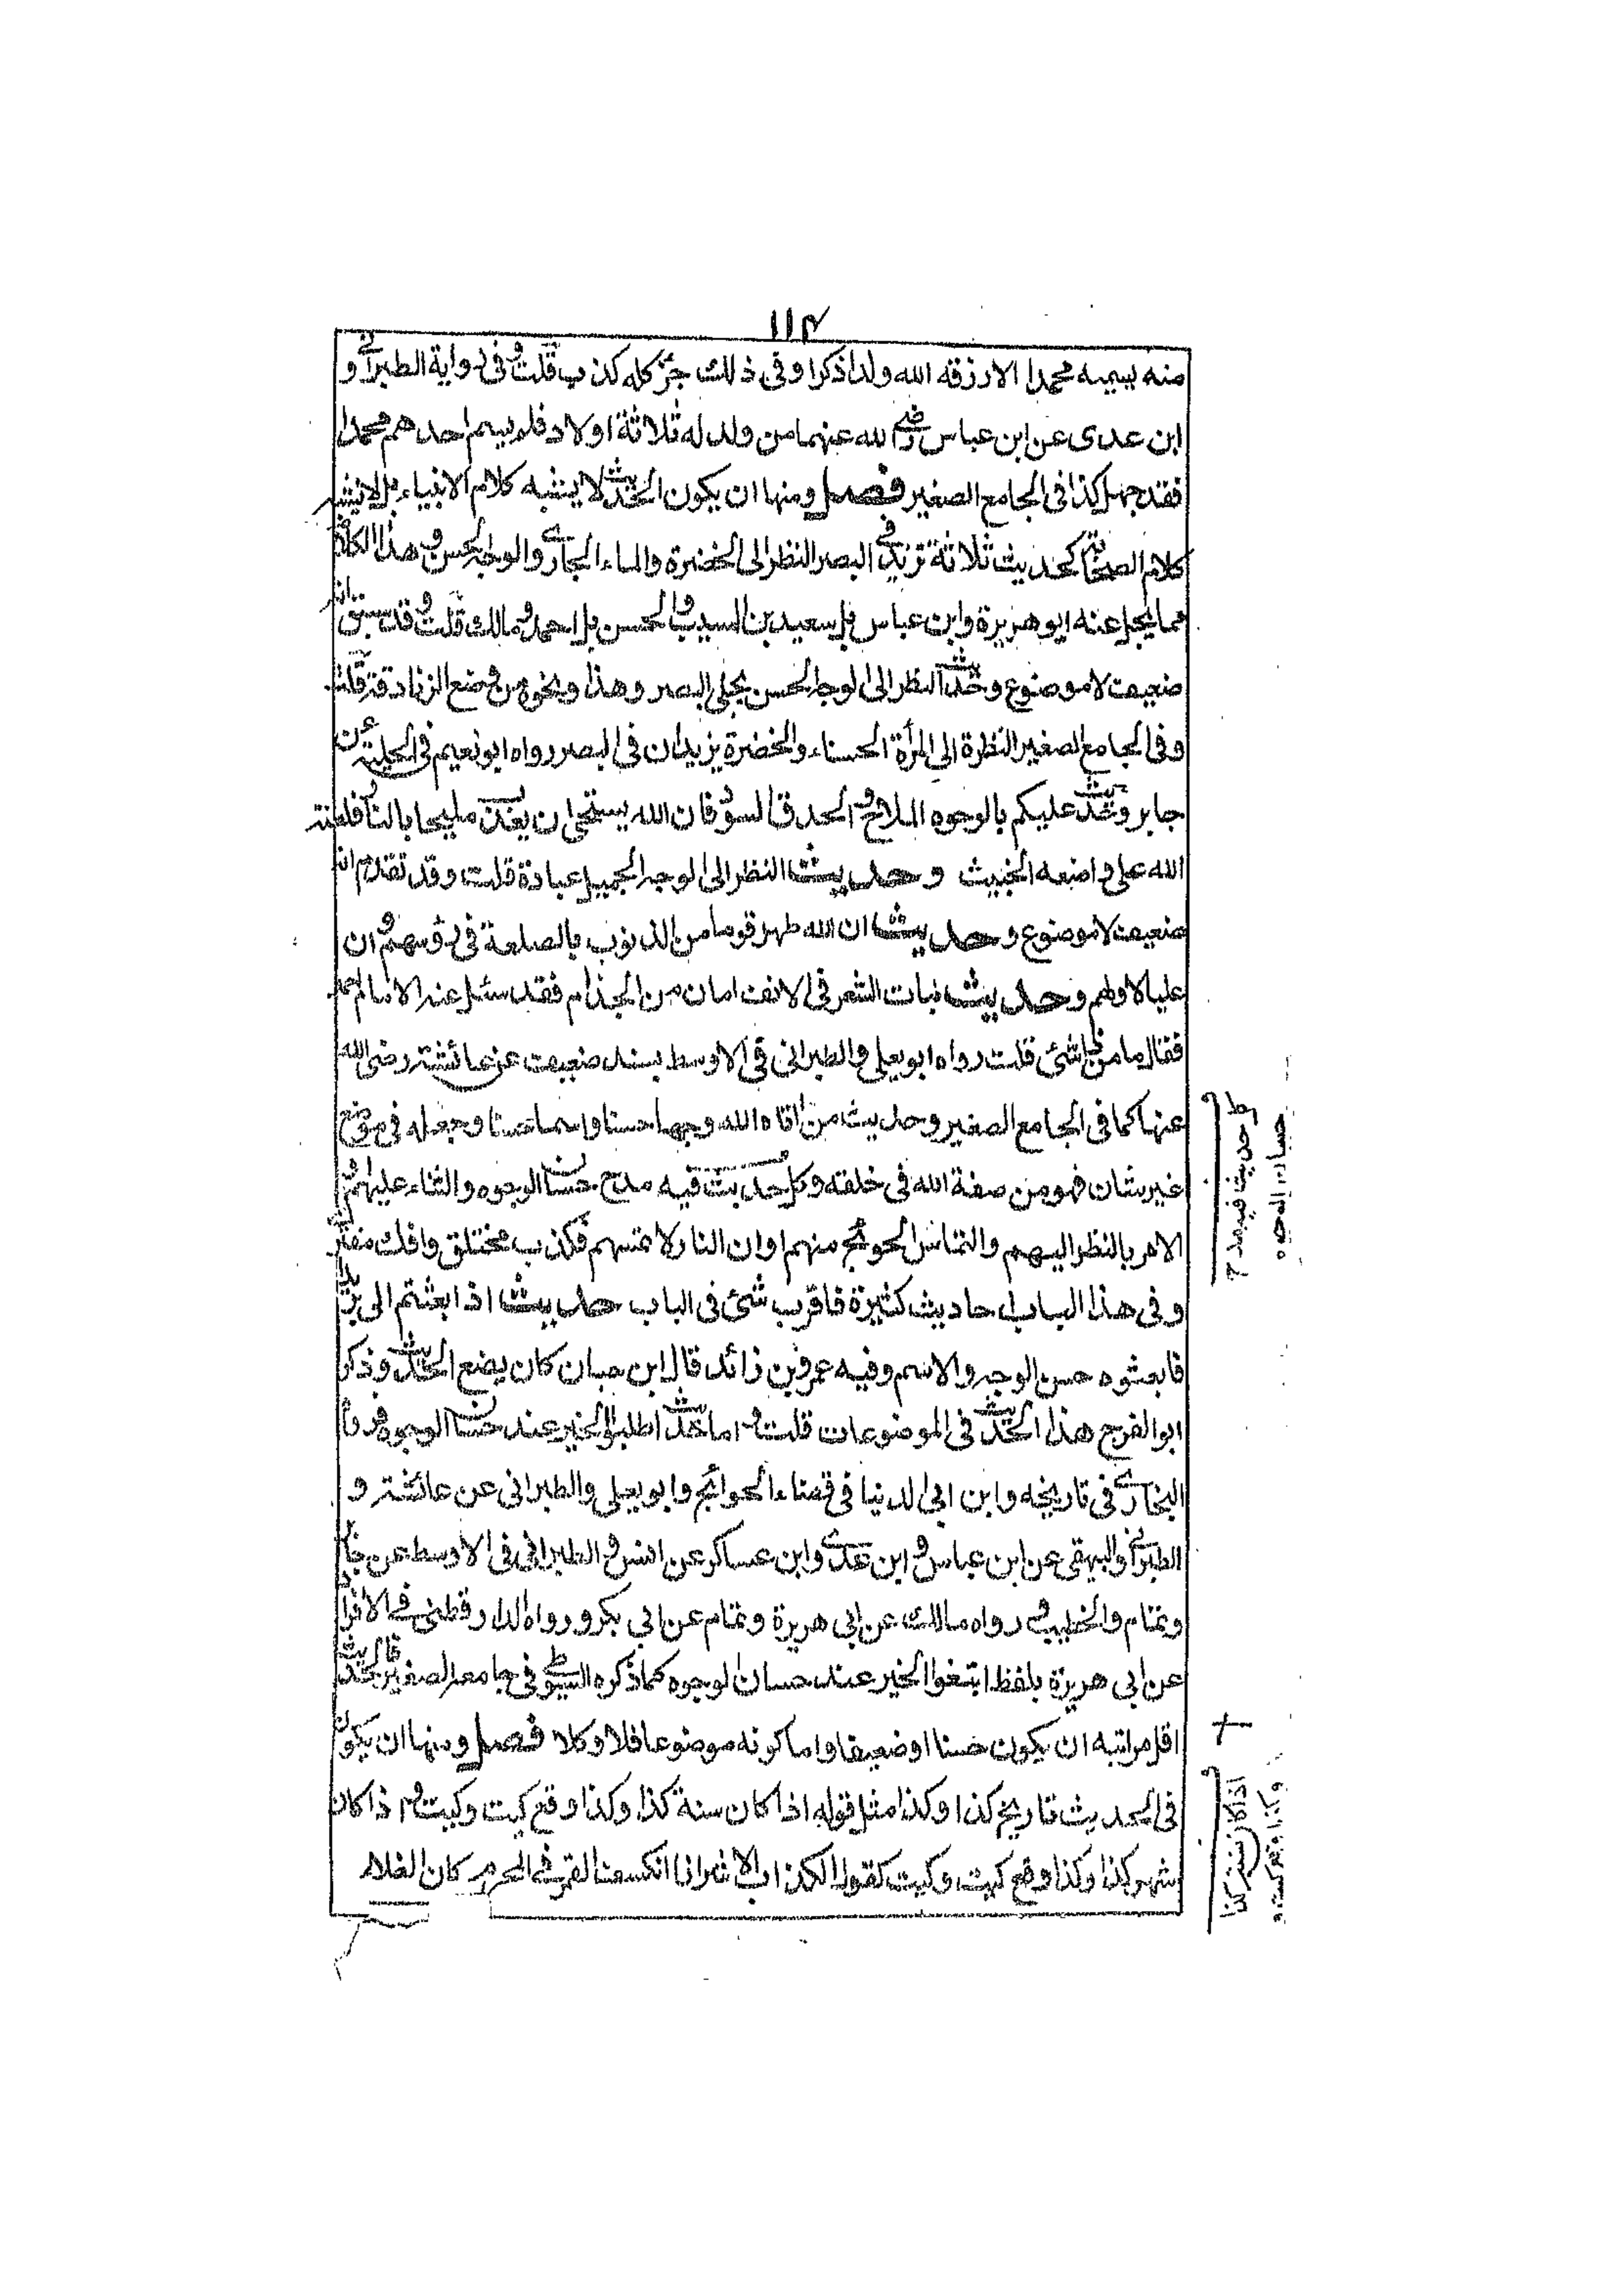 ١١٤
منه يسميه محمدا الا رزقه الله ولدا ذكرا وفى ذلك جزء كله كذب قلت وفى رواية الطبرانى و
ابن عدى عن ابن عباس رضى الله عنهما من ولد له ثلاثة اولاد فلم يسم احدهم محمدا
فقد جهل كذا فى الجامع الصغير فصل ومنها ان يكون الحديث لا يشبه كلام الانبياء بل لا يشبه
كلام الصحابة كحديث ثلاثة تزيد فى البصر النظر الى الخضرة والماء الجارى والوجه الحسن وهذا الكلام
مما يجل عنه ابو هريرة وابن عباس بل سعيد بن المسيب والحسن بل احمد ومالك قلت وقد سبق انه
ضعيف لا موضوع وحديث النظر الى الوجه الحسن يجلى البصر وهذا ونحوه من وضع الزنادقة قلت
وفى الجامع الصغير النظرة الى المرأة الحسناء والخضرة يزيدان فى البصر رواه ابو نعيم فى الحلية عن
جابر وحديث عليكم بالوجوه الملاح والحدق السود فان الله يستحى ان يعذب مليحا بالنار فلعنة
الله على واضعه الخبيث وحديث النظر الى الوجه الجميل عبادة قلت وقد تقدم انه
ضعيف لا موضوع وحديث ان الله طهر قوما من الذنوب بالصلعة فى رؤسهم وان
عليا لاولهم وحديث نبات الشعر فى الانف امان من الجذام فقد سئل عنه الامام احمد
فقال ما من ذا شئ قلت رواه ابو يعلى والطبرانى فى الاوسط بسند ضعيف عن عائشة رضى الله
عنها كما فى الجامع الصغير وحديث من اتاه الله وجها حسنا واسما حسنا وجعله فى موضع
غير شان فهو من صفة الله فى خلقه وكل حديث فيه مدح حسان الوجوه والثناء عليهم و
الامر بالنظر اليهم والتماس الحوائج منهم او ان النار لا تمسهم فكذب مختلق وافك مفترى
وفى هذا الباب احاديث كثيرة فاقرب شئ فى الباب حديث اذا بعثتم الى بريدا
فابعثوه حسن الوجه والاسم وفيه عمرو بن زائد قال ابن حبان كان يضع الحديث وذكر
ابو الفرج هذا الحديث فى الموضوعات قلت واما حديث اطلبوا الخير عند حسان الوجوه فرواه
البخارى فى تاريخه وابن ابى الدنيا فى قضاء الحوائج وابو يعلى والطبرانى عن عائشة و
الطبرانى والبيهقى عن ابن عباس وابن عدى وابن عساكر عن انس والطبرانى فى الاوسط عن جابر
وتمام والخطيب فى رواه مالك عن ابى هريرة وتمام عن ابى بكر ورواه الدار قطنى فى الافراد
عن ابى هريرة بلفظ ابتغوا الخير عند حسان الوجوه كما ذكره السيوطى فى جامعه الصغير فالحديث
اقل مراتبه ان يكون حسنا او ضعيفا واما كونه موضوعا فلا وكلا فصل ومنها ان يكون
فى الحديث تاريخ كذا وكذا مثل قوله اذا كان سنة كذا وكذا وقع كيت وكيت واذا كان
شهر كذا وكذا وقع كيت وكيت كقول الكذاب الاشر اذا انكسف القمر فى المحرم كان الغلاء
حديث فيه مدح
حسان الوجوه
اذا كان سنة كذا
وكذا وقع كيت و